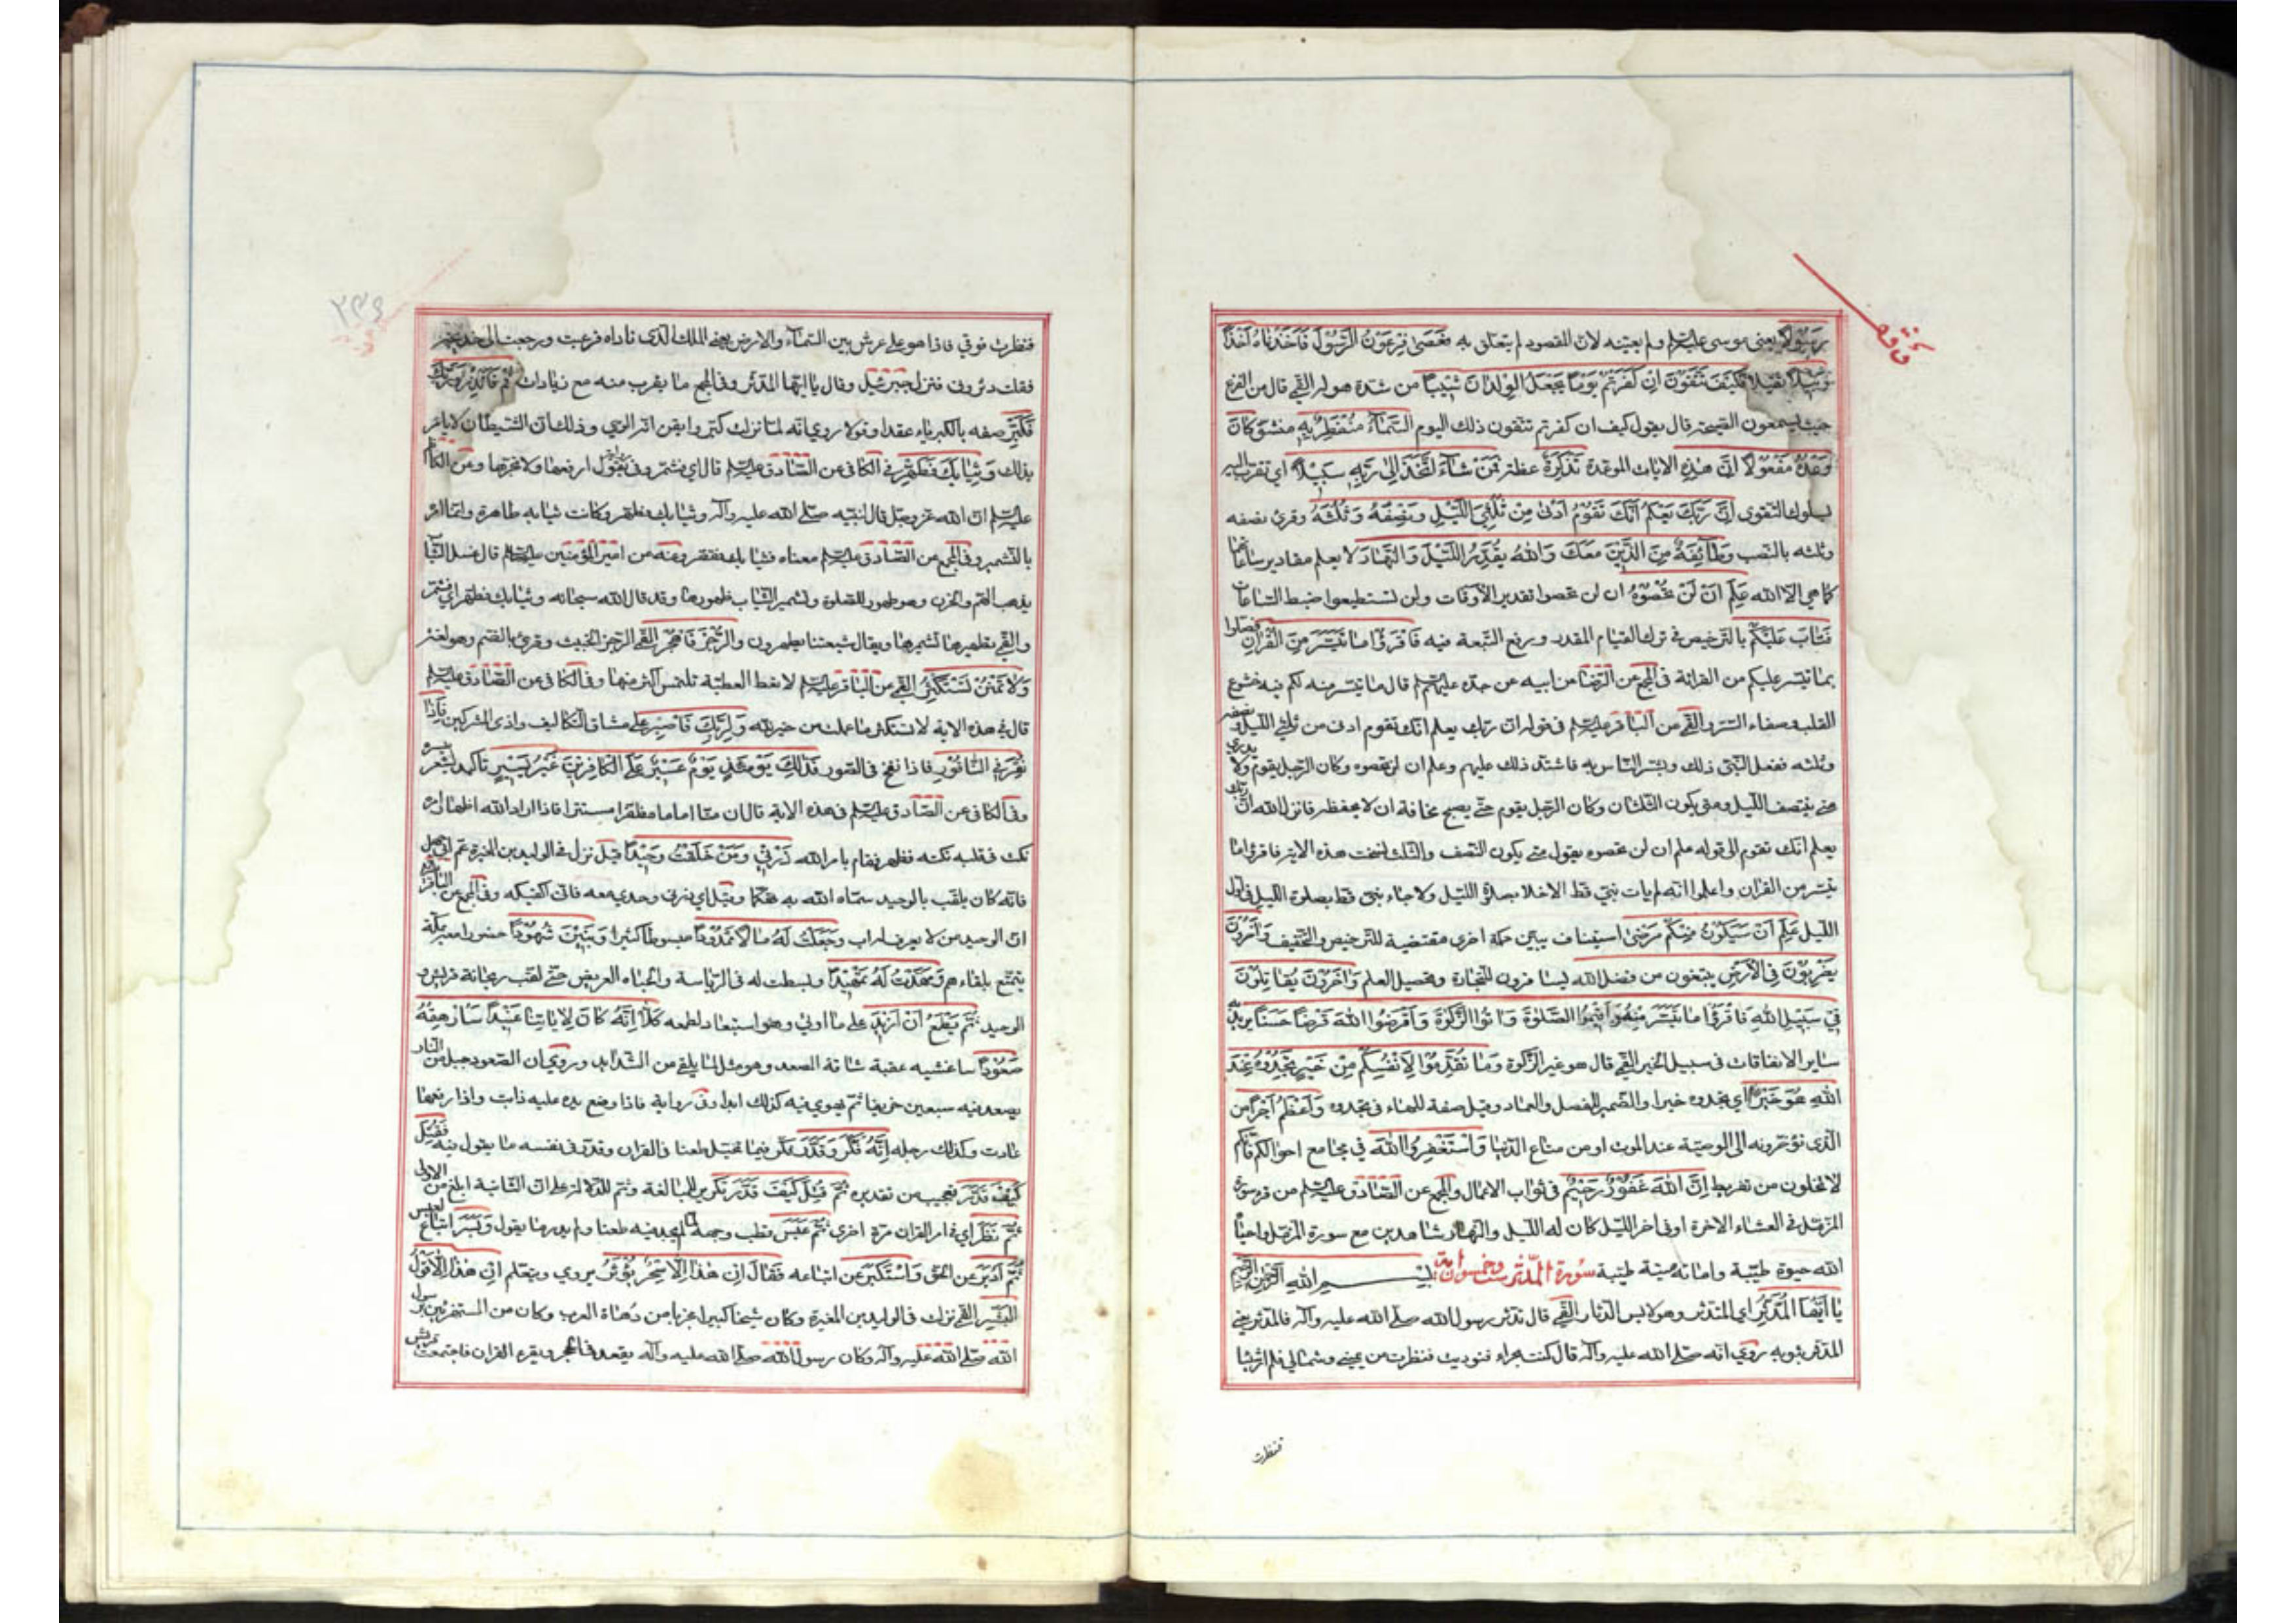 رَسُولًا يعنى موسى عليه السلم ولم يعينه لان المقصود لم يتعلق به فَعَصىٰ فِرْعَوْنُ الرَّسُولَ فَاَخَذْناهُ اَخْذًا
وَبِيلًا ثقيلا فَكَيْفَ تَتَّقُونَ اِنْ كَفَرْتُمْ يَوْمًا يَجْعَلُ الْوِلْدانَ شِيبًا من شدة هوله القمي قال من الفزع
حيث يسمعون الصيحة قال يقول كيف ان كفرتم تتقون ذلك اليوم اَلسَّمآءُ مُنْفَطِرٌ بِهِ منشق كانَ
وَعْدُهُ مَفْعُولًا اِنَّ هٰذِهِ الايات الموعدة تَذْكِرَةٌ عظة فَمَنْ شآءَ اتَّخَذَ اِلىٰ رَبِّهِ سَبِيلًا اي تقرب اليه
بسلوك التقوى اِنَّ رَبَّكَ يَعْلَمُ اَنَّكَ تَقُومُ اَدْنىٰ مِنْ ثُلُثَيِ اللَّيْلِ وَنِصْفَهُ وَثُلُثَهُ وقرئ نصفه
وثلثه بالنصب وَطآئِفَةٌ مِنَ الَّذِينَ مَعَكَ وَاللهُ يُقَدِّرُ اللَّيْلَ وَالنَّهارَ لا يعلم مقادير ساعاتهما
كما هي الا الله عَلِمَ اَنْ لَنْ تُحْصُوهُ ان لن تحصوا تقدير الاوقات ولن تستطيعوا ضبط الساعات
فَتابَ عَلَيْكُمْ بالترخيص في ترك القيام المقدر ورفع التبعة فيه فَاقْرَؤُا ما تَيَسَّرَ مِنَ الْقُرْانِ فصلوا
بما تيسر عليكم من القرائة في المجمع عن الرضا عن ابيه عن جده عليهم السلم قال ما تيسر منه لكم فيه خشوع
القلب وصفاء السر والقمي عن الباقر عليه السلم في قوله ان ربك يعلم انك تقوم ادنى من ثلثي الليل ونصفه
وثلثه ففعل النبي ذلك وبشر الناس به فاشتد ذلك عليهم وعلم ان لن تحصوه وكان الرجل يقوم ولا يدري
متى ينتصف الليل ومتى يكون الثلثان وكان الرجل يقوم حتى يصبح مخافة ان لا يحفظه فانزل الله ان ربك
يعلم انك تقوم الى قوله علم ان لن تحصوه يقول متى يكون النصف والثلث نسخت هذه الاية فاقرؤا ما
تيسر من القران واعلموا انه لم يات نبي قط الا خلا بصلوة الليل ولا جاء نبي قط بصلوة الليل في اول
الليل عَلِمَ اَنْ سَيَكُونُ مِنْكُمْ مَرْضىٰ استيناف يبين حكمة اخرى مقتضية للترخيص والتخفيف وَاخَرُونَ
يَضْرِبُونَ فِي الْاَرْضِ يبتغون من فضل الله يسافرون للتجارة وتحصيل العلم وَاخَرُونَ يُقاتِلُونَ
فِي سَبِيلِ اللهِ فَاقْرَؤُا ما تَيَسَّرَ مِنْهُ وَاَقِيمُوا الصَّلٰوةَ وَاتُوا الزَّكٰوةَ وَاَقْرِضُوا اللهَ قَرْضًا حَسَنًا يريد به
ساير الانفاقات في سبيل الخير القمي قال هو غير الزكوة وَما تُقَدِّمُوا لِاَنْفُسِكُمْ مِنْ خَيْرٍ تَجِدُوهُ عِنْدَ
اللهِ هُوَ خَيْرًا اي تجدوه خيرا والضمير للفصل والعماد وقيل صفة للهاء في تجدوه وَاَعْظَمُ اَجْرًا من
الذي تؤخرونه الى الوصية عند الموت او من متاع الدنيا وَاسْتَغْفِرُوا اللهَ في مجامع احوالكم فانكم
لا تخلون من تفريط اِنَّ اللهَ غَفُورٌ رَحِيمٌ في ثواب الاعمال والمجمع عن الصادق عليه السلم من قرء سورة
المزمل في العشاء الاخرة او في اخر الليل كان له الليل والنهار شاهدين مع سورة المزمل واحياه
الله حيوة طيبة واماته ميتة طيبة سورة المدثر ست وخمسون اية بسم الله الرحمن الرحيم
يا اَيُّهَا الْمُدَّثِّرُ اي المتدثر وهو لابس الدثار القمي قال تدثر رسول الله صلى الله عليه وآله فالمدثر يعني
المدثر بثوبه روي انه صلى الله عليه وآله قال كنت بحراء فنوديت فنظرت عن يميني وشمالي فلم ار شيئا
فنظرت
فنظرت فوقي فاذا هو على عرش بين السماء والارض يعني الملك الذي ناداه فرعبت ورجعت الى خديجة
فقلت دثروني فنزل جبرئيل وقال يا ايها المدثر وفي المجمع ما يقرب منه مع زيادات قُمْ فَاَنْذِرْ وَرَبَّكَ
فَكَبِّرْ صفه بالكبرياء عقدا وقولا روي انه لما نزلت كبر وايقن انه الوحي وذلك ان الشيطان لا يامر
بذلك وَثِيابَكَ فَطَهِّرْ في الكافي عن الصادق عليه السلم قال اي فشمر وفي يقول ارفعها ولا تجرها وعن الكاظم
عليه السلم ان الله عز وجل قال لنبيه صلى الله عليه وآله وثيابك فطهر وكانت ثيابه طاهرة وانما امر
بالتشمير وفي المجمع عن الصادق عليه السلم معناه فثيابك فقصر وعنه عن امير المؤمنين عليه السلم قال غسل الثياب
يذهب الهم والحزن وهو طهور للصلوة وتشمير الثياب طهورها وقد قال الله سبحانه وثيابك فطهر اي فشمر
والقمي تطهيرها تشميرها ويقال شيعتنا يطهرون وَالرُّجْزَ فَاهْجُرْ القمي الرجز الخبيث وقرئ بالضم وهو لغة
وَلا تَمْنُنْ تَسْتَكْثِرُ القمي عن الباقر عليه السلم لا تعط العطية تلتمس اكثر منها وفي الكافي عن الصادق عليه السلم
قال في هذه الاية لا تستكثر ما عملت من خير لله وَلِرَبِّكَ فَاصْبِرْ على مشاق التكاليف واذى المشركين فَاِذا
نُقِرَ فِي النّاقُورِ فاذا نفخ في الصور فَذٰلِكَ يَوْمَئِذٍ يَوْمٌ عَسِيرٌ عَلَى الْكافِرِينَ غَيْرُ يَسِيرٍ تاكيد
وفي الكافي عن الصادق عليه السلم في هذه الاية قال ان منا اماما مظفرا مستترا فاذا اراد الله اظهار امره
نكت في قلبه نكتة فظهر فقام بامر الله ذَرْنِي وَمَنْ خَلَقْتُ وَحِيدًا قيل نزل في الوليد بن المغيرة عم ابي جهل
فانه كان يلقب بالوحيد سماه الله به تهكما وقيل اي ذرني وحدي معه فاني اكفيكه وفي المجمع عن الباقر
ان الوحيد من لا يعرف له اب وَجَعَلْتُ لَهُ مالًا مَمْدُودًا مبسوطا كثيرا وَبَنِينَ شُهُودًا حضورا معه بمكة
يتمتع بلقاءهم وَمَهَّدْتُ لَهُ تَمْهِيدًا وبسطت له في الرياسة والجاه العريض حتى لقب ريحانة قريش و
الوحيد ثُمَّ يَطْمَعُ اَنْ اَزِيدَ على ما اوتي وهو استبعاد لطمعه كَلّا اِنَّهُ كانَ لِاياتِنا عَنِيدًا سَاُرْهِقُهُ
صَعُودًا ساغشيه عقبة شاقة المصعد وهو مثل لما يلقى من الشدايد وروي ان الصعود جبل من النار
يصعد فيه سبعين خريفا ثم يهوي فيه كذلك ابدا وفي رواية فاذا وضع يده عليه ذابت واذا رفعها
عادت وكذلك رجله اِنَّهُ فَكَّرَ وَقَدَّرَ فكر فيما تخيل طعنا في القران وقدر في نفسه ما يقول فيه فَقُتِلَ
كَيْفَ قَدَّرَ تعجيب من تقديره ثُمَّ قُتِلَ كَيْفَ قَدَّرَ تكرير للمبالغة وثم للدلالة على ان الثانية ابلغ من الاولى
ثُمَّ نَظَرَ اي في امر القران مرة اخرى ثُمَّ عَبَسَ قطب وجهه لما لم يجد فيه طعنا ولم يدر ما يقول وَبَسَرَ اتباع لعبس
ثُمَّ اَدْبَرَ عن الحق وَاسْتَكْبَرَ عن اتباعه فَقالَ اِنْ هٰذا اِلّا سِحْرٌ يُؤْثَرُ يروى ويتعلم اِنْ هٰذا اِلّا قَوْلُ
الْبَشَرِ القمي نزلت في الوليد بن المغيرة وكان شيخا كبيرا مجربا من دهاة العرب وكان من المستهزئين برسول
الله صلى الله عليه وآله وكان رسول الله صلى الله عليه وآله يقعد في الحجر ويقرء القران فاجتمعت قريش